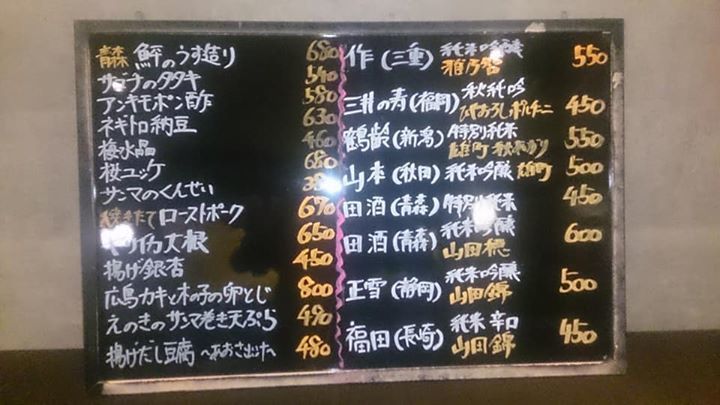 青森 鮃のうす造り 680
サゴチのタタキ 540
アンキモポン酢 580
ネギトロ納豆 630
梅水晶 460
桜ユッケ 680
サンマのくんせい 380
焼きたてローストポーク 670
ヤリイカ大根 650
揚げ銀杏 450
広島カキと木の子の卵とじ 800
えのきのサンマ巻き天ぷら 490
揚げだし豆腐 〜あおさ出汁〜 480
作(三重) 純米吟醸 雅乃智 550
三井の寿(福岡) 秋純吟 ひやおろしポルチーニ 450
鶴齢(新潟) 特別純米 雄町 秋あがり 550
山本(秋田) 純米吟醸 雄町 500
田酒(青森) 特別純米 450
田酒(青森) 純米吟醸 山田穂 600
正雪(静岡) 純米吟醸 山田錦 500
福田(長崎) 純米 辛口 山田錦 450